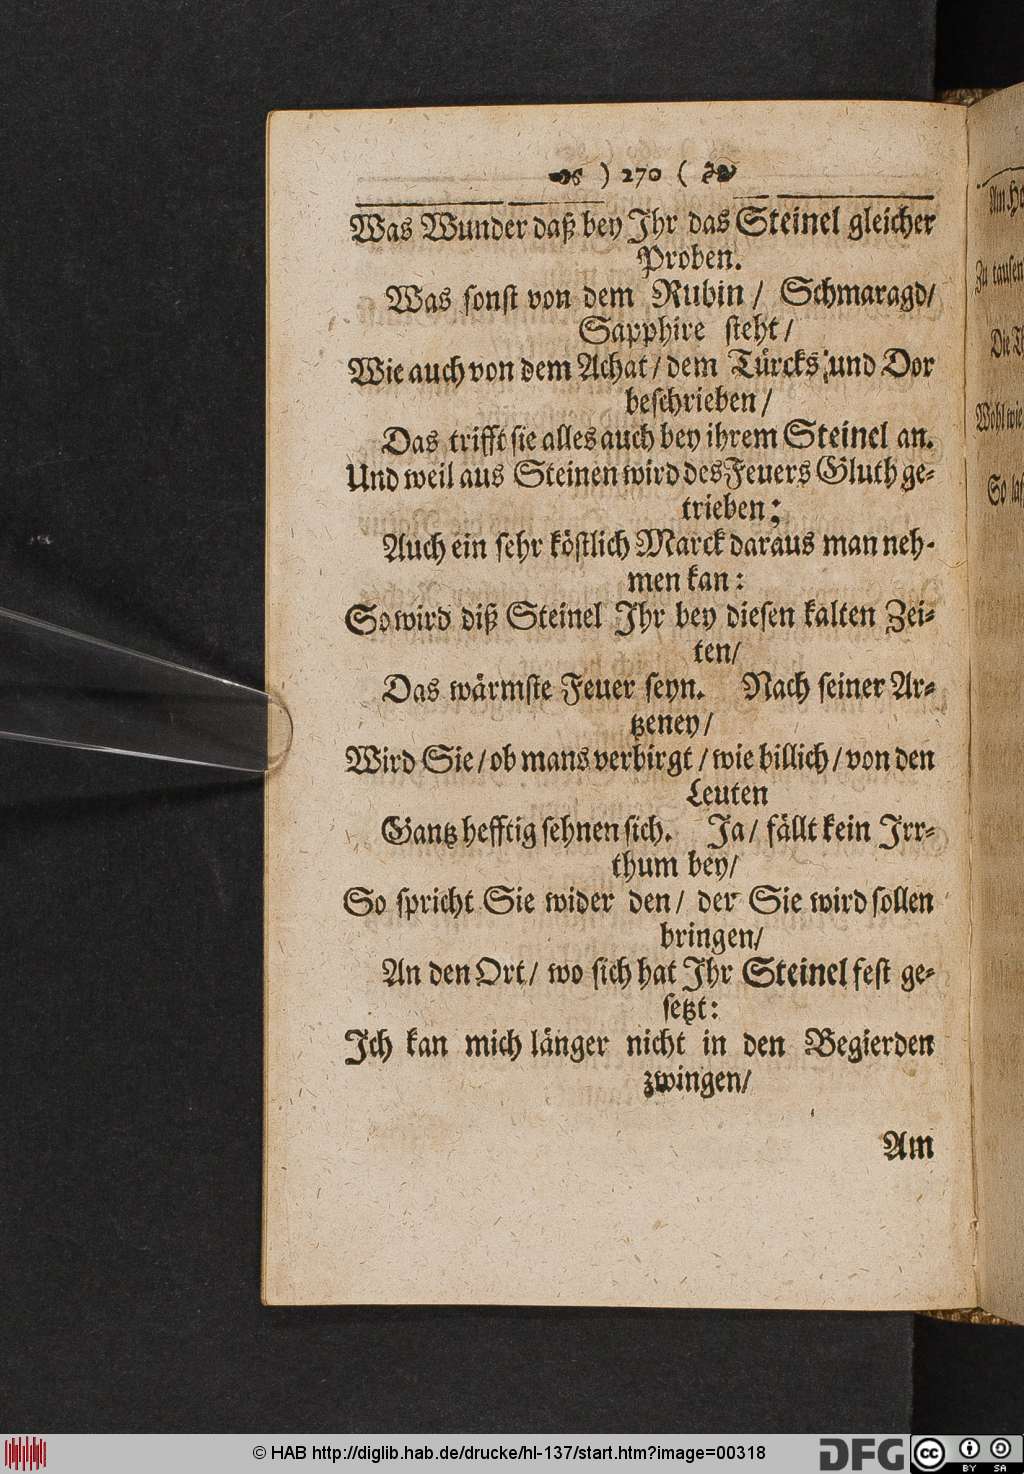 ) 270 (
Was Wunder daß bey Ihr das Steinel gleicher
Proben.
Was sonst von dem Rubin / Schmaragd/
Sapphire steht /
Wie auch von dem Achat / dem Türcks, und Dor
beschrieben /
Das trifft sie alles auch bey ihrem Steinel an.
Und weil aus Steinen wird des Feuers Gluth ge-
trieben;
Auch ein sehr köstlich Marck daraus man neh-
men kan:
So wird diß Steinel Ihr bey diesen kalten Zei-
ten/
Das wärmste Feuer seyn. Nach seiner Ar-
tzeney /
Wird Sie / ob mans verbirgt / wie billich / von den
Leuten
Gantz hefftig sehnen sich. Ja / fällt kein Irr-
thum bey/
So spricht Sie wider den / der Sie wird sollen
bringen/
An den Ort / wo sich hat Ihr Steinel fest ge-
setzt:
Ich kan mich länger nicht in den Begierden
zwingen/
Am
Zu
Die
Wohl wie
So
© HAB http://diglib.hab.de/drucke/hl-137/start.htm?image=00318
DFG
cc BY SA